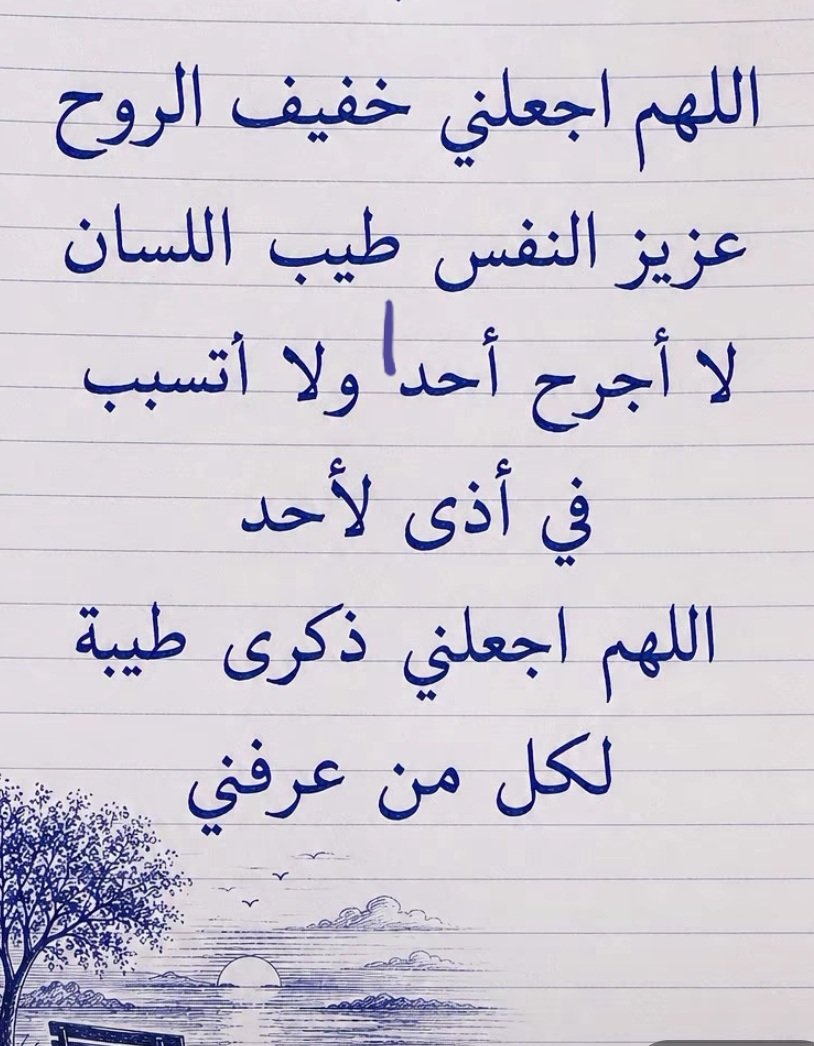 اللهم اجعلني خفيف الروح
عزيز النفس طيب اللسان
لا أجرح أحدا ولا أتسبب
في أذى لأحد
اللهم اجعلني ذكرى طيبة
لكل من عرفني